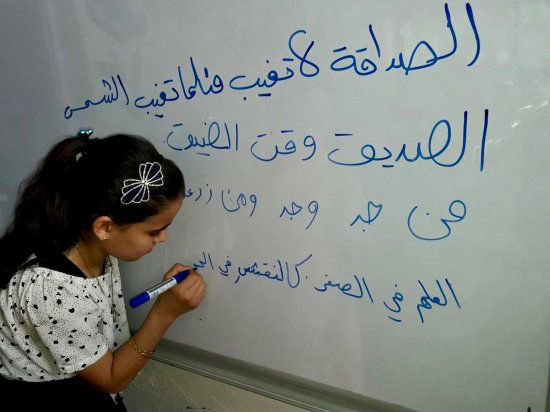 الصداقة لا تغيب مثلما تغيب الشمس
الصديق وقت الضيق.
من جد وجد ومن زرع
العلم في الصغر. كالنقش في الحجر